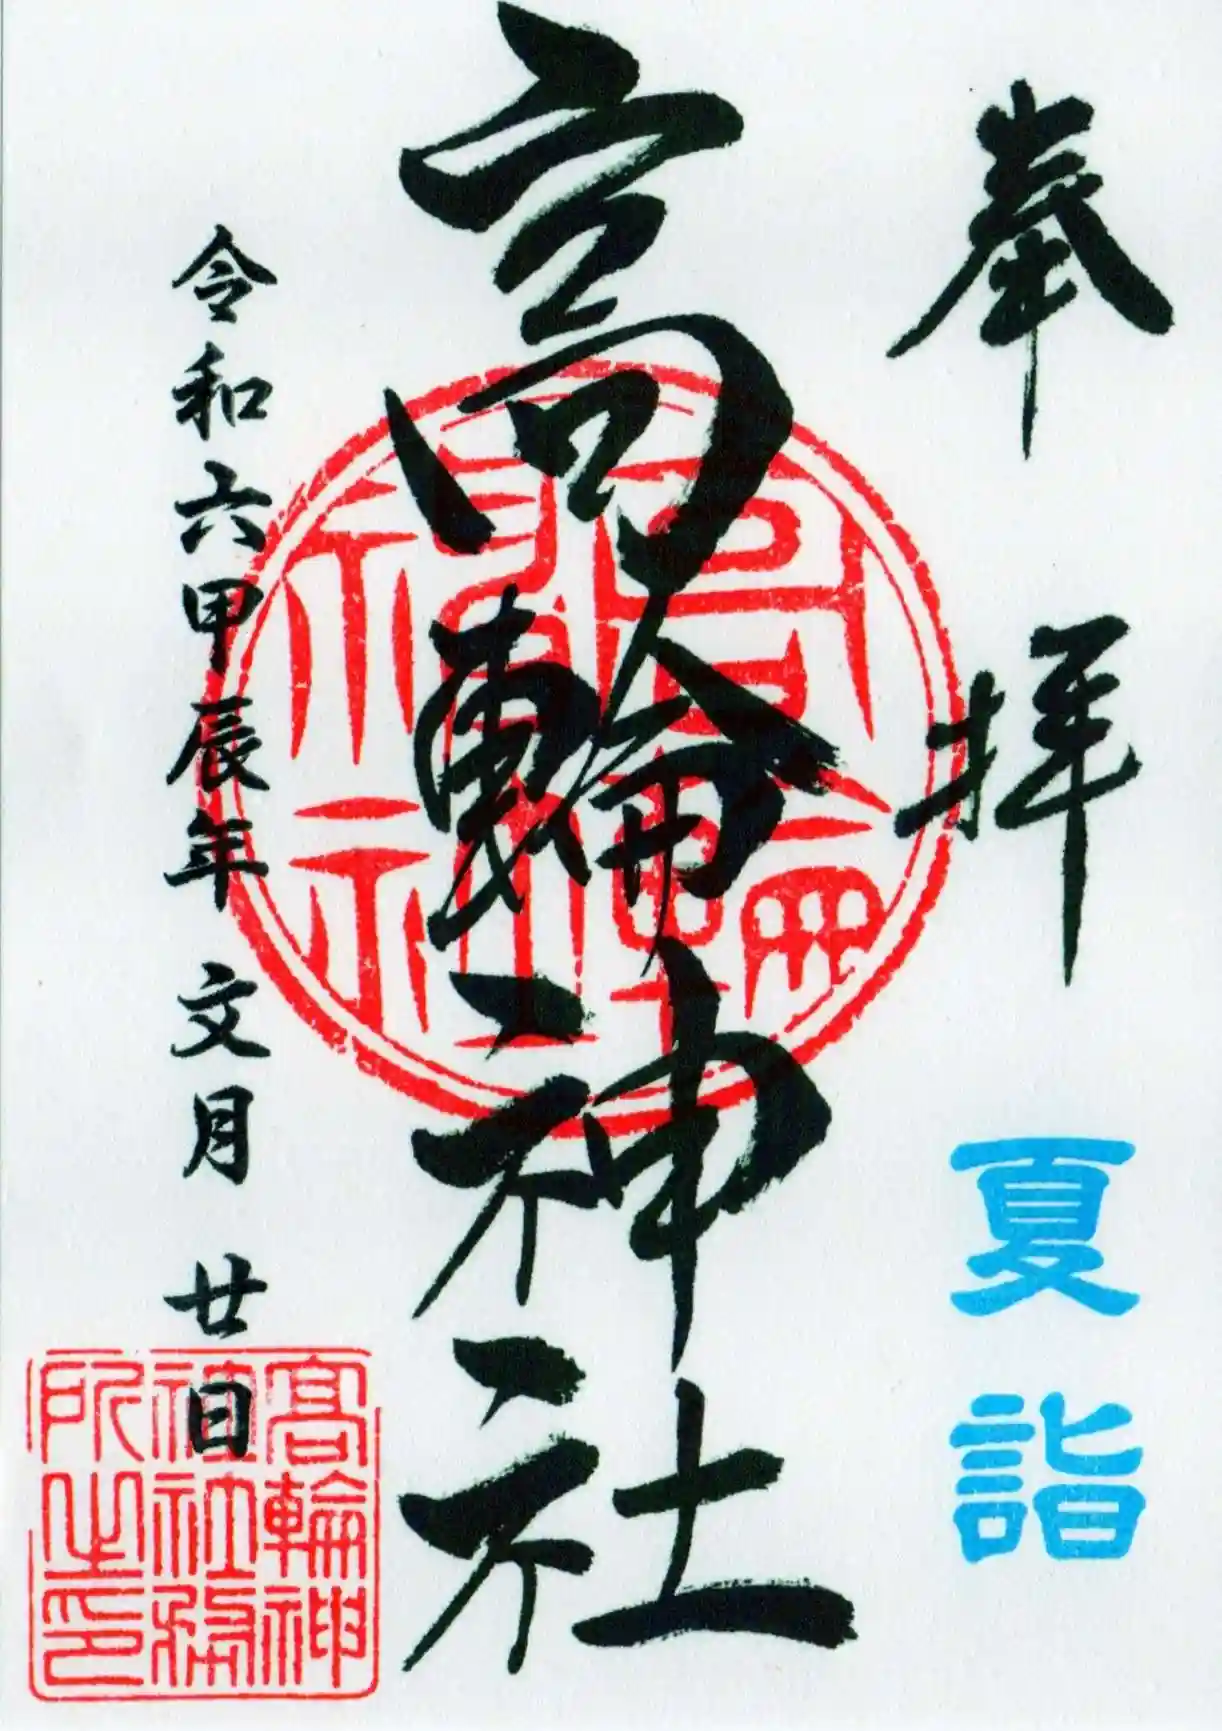 奉拝
夏詣
高輪神社
高輪神社
令和六甲辰年 文月 廿日
高輪神
社社務
所之印